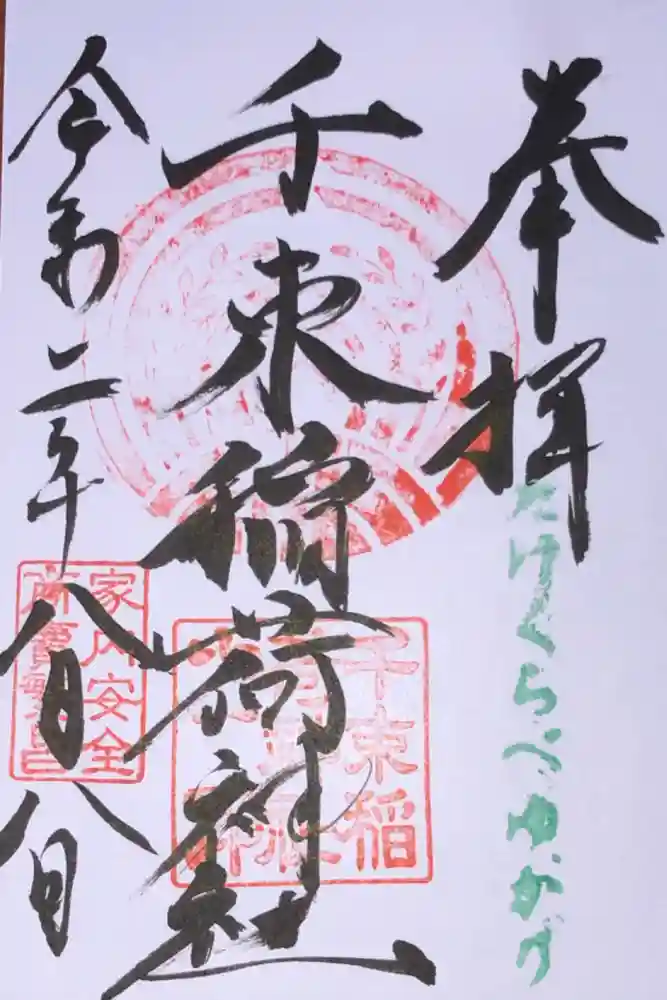 奉拝
たけくらべゆかり
千束稲荷神社
令和二年
八月八日
千束稲
家内安全
商売繁昌